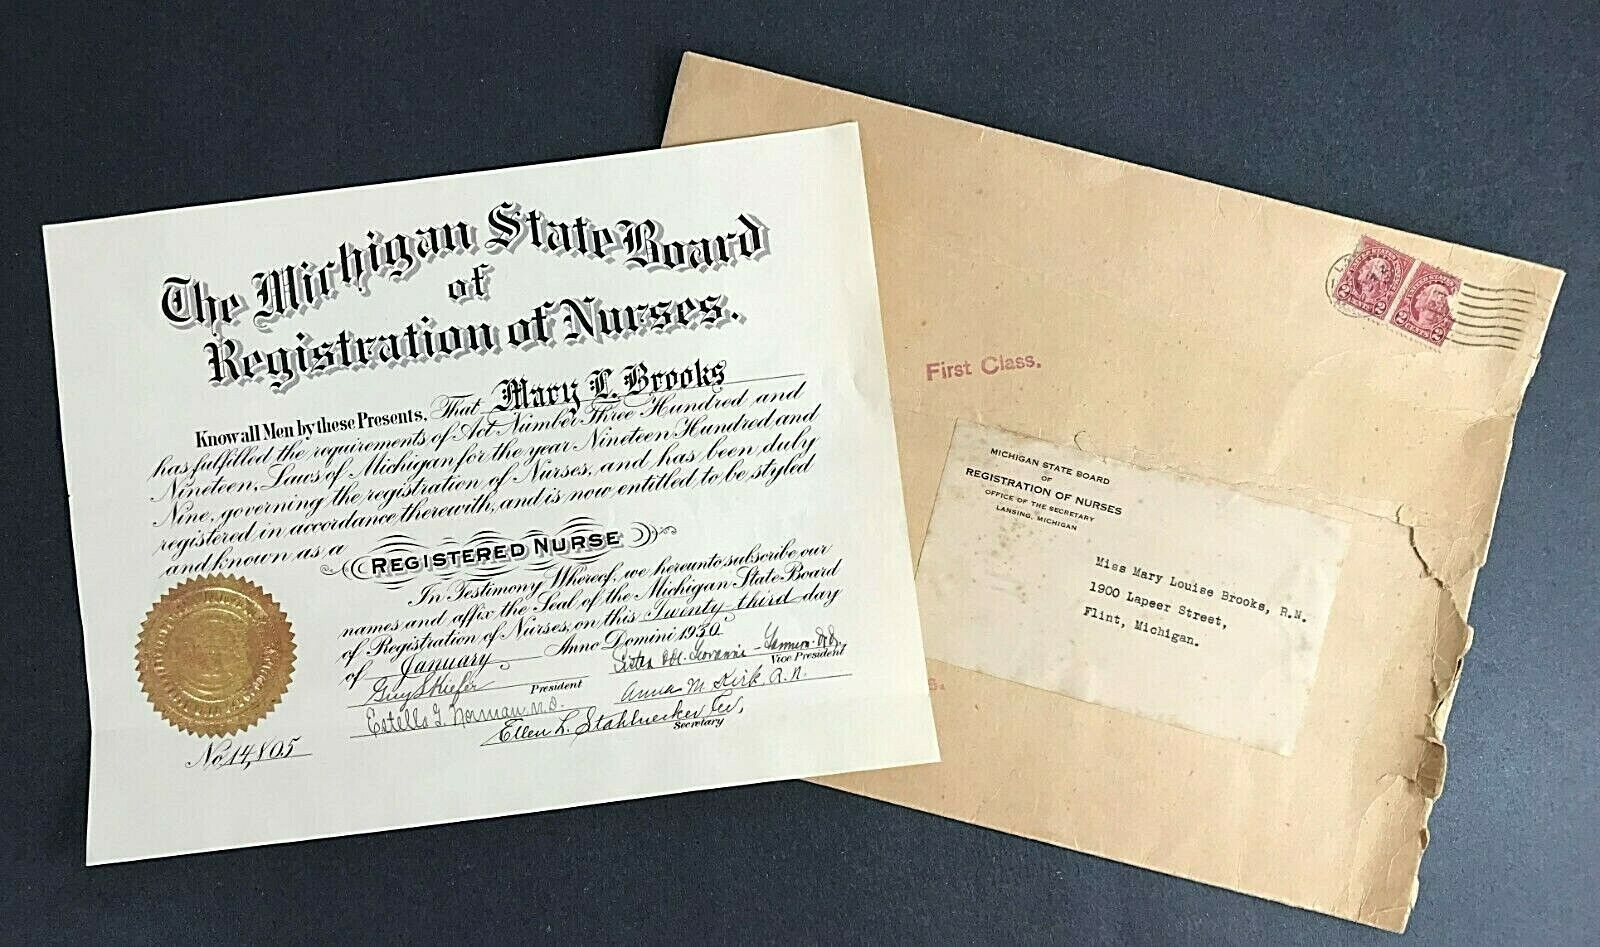 The Michigan State Board
of
Registration of Nurses.
Know all Men by these Presents, That Mary L. Brooks
has fulfilled the requirements of Act Number Three Hundred and
Nineteen, Laws of Michigan for the year Nineteen Hundred and
Nine, governing the registration of Nurses, and has been duly
registered in accordance therewith, and is now entitled to be styled
and known as a
REGISTERED NURSE
In Testimony Whereof, we hereunto subscribe our
names and affix the Seal of the Michigan State Board
of Registration of Nurses, on this Twenty third day
of January Anno Domini 1930
Guy L Kiefer President
Sister M. Giovanni Vice President
Estella G. Norman M.D.
Anna M. Kirk R.N.
Ellen L. Stahlnecker
Secretary
No. 14,805
2 CENTS 2
2 CENTS 2
First Class.
MICHIGAN STATE BOARD
OF
REGISTRATION OF NURSES
OFFICE OF THE SECRETARY
LANSING, MICHIGAN
Miss Mary Louise Brooks, R.N.
1900 Lapeer Street,
Flint, Michigan.